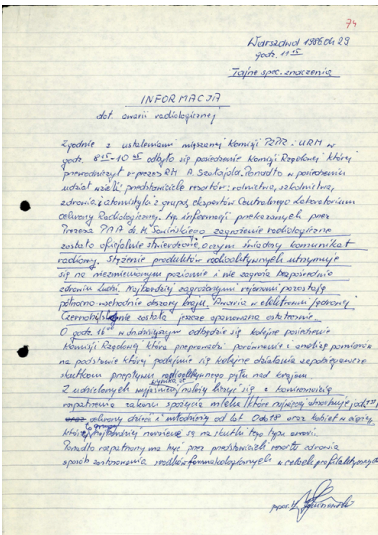 74
Warszawa 1986.04.29
godz. 11 15
Tajne spec. znaczenia
INFORMACJA
dot. awarii radiologicznej
Zgodnie z ustaleniami mieszanej Komisji PZPR i URM w
godz. 8 15 - 10 45 odbyło się posiedzenie Komisji Rządowej, której
przewodniczył v-prezes RM. Z. Szałajda. Ponadto w posiedzeniu
udział wzięli przedstawiciele resortów: rolnictwa, szkolnictwa,
zdrowia i atomistyki z grupą ekspertów Centralnego Laboratorium
Ochrony Radiologicznej. Wg informacji przekazanych przez
Prezesa PAA dr. M. Sowińskiego zagrożenie radiologiczne
zostało oficjalnie stwierdzone. O czym świadczy komunikat
radiowy. Stężenie produktów radioaktywnych utrzymuje
się na niezmienionym poziomie i nie zagraża bezpośrednio
zdrowiu ludzi. Najbardziej zagrożonymi rejonami pozostają
północno-wschodnie obszary kraju. Awaria w elektrowni jądrowej
Czernobyl nie została jeszcze opanowana ostatecznie.
O godz. 16 00 w dniu dzisiejszym odbędzie się kolejne posiedzenie
Komisji Rządowej, która przeprowadzi porównanie i analizę pomiarów
na podstawie której podejmie się kolejne działania zapobiegawcze
skutkom przepływu radioaktywnego pyłu nad krajem.
Z udzielonych wyjaśnień wynika, iż należy liczyć się z koniecznością
rozpatrzenia zakazu spożycia mleka
oraz ochrony dzieci i młodzieży od lat 0 do 18 oraz kobiet w ciąży,
która to grupa najbardziej narażone są na skutki tego typu awarii.
Ponadto rozpatrzony ma być przez przedstawicieli resortu zdrowia
sposób zastosowania środków farmakologicznych w celach profilaktycznych.